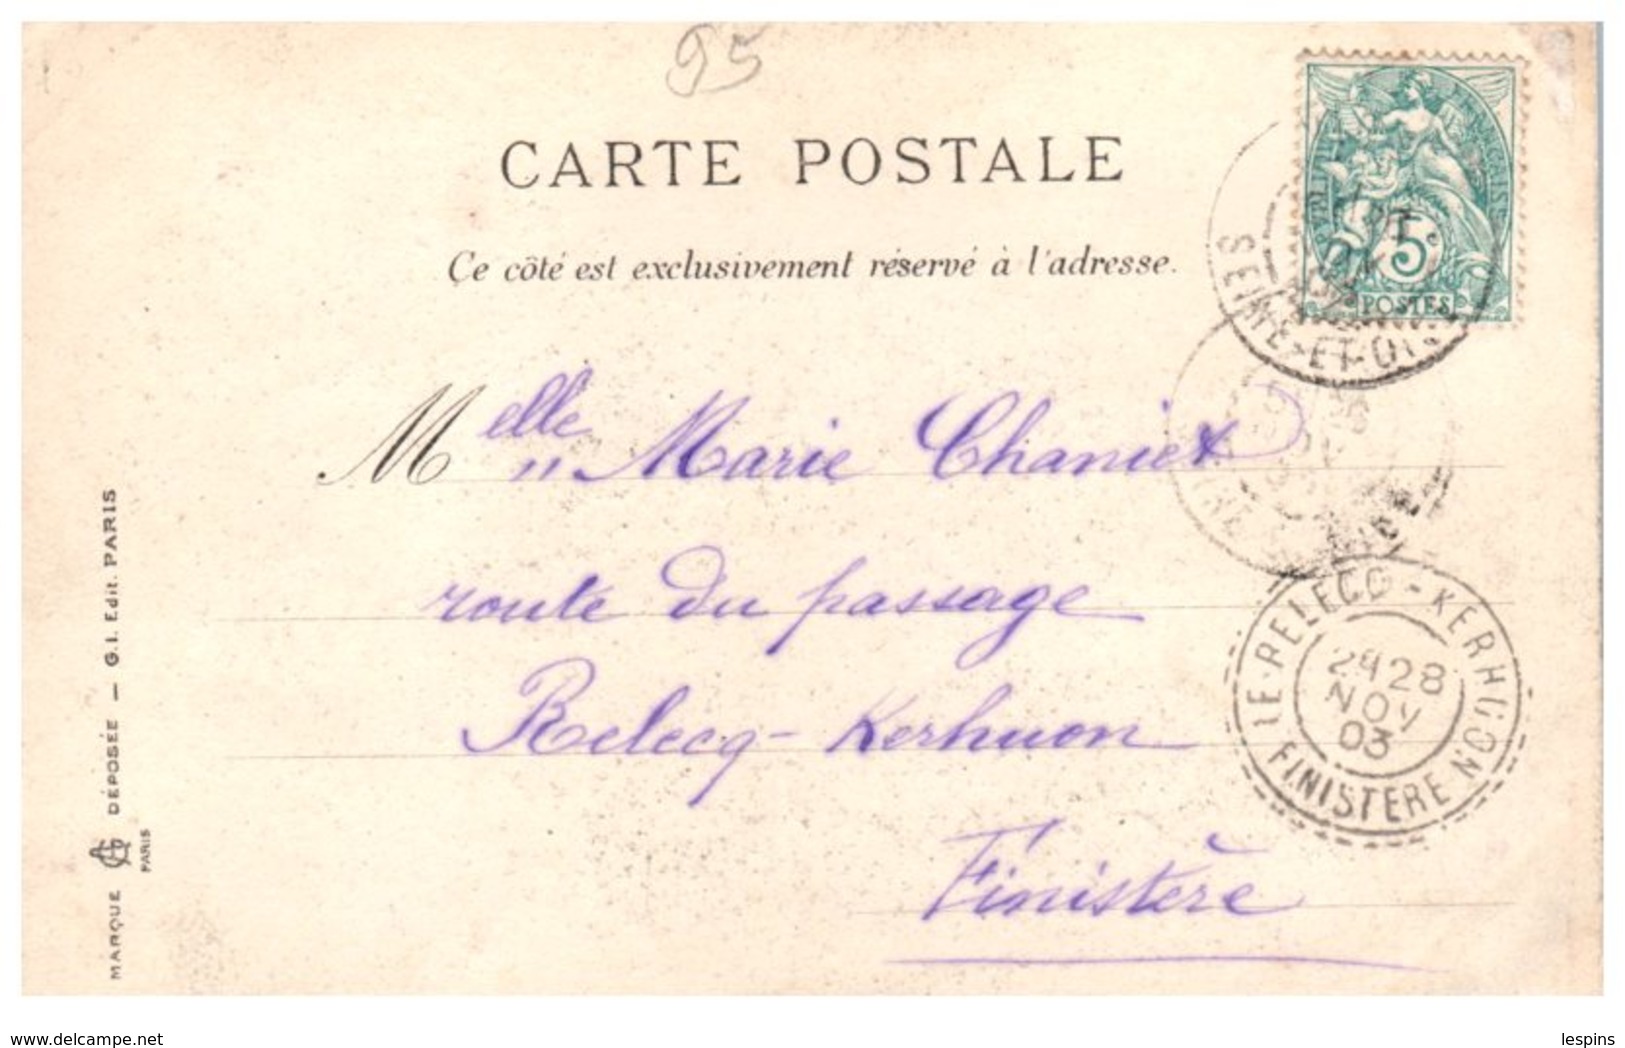 95
CARTE POSTALE
Ce côté est exclusivement réservé à l'adresse.
5
POSTES
SEINE-ET-OISE
Melle Marie Chaniet
route du passage
Relecq-Kerhuon
Finistère
LE RELECQ-KERHUON
2E 28
NOV
03
FINISTERE
MARQUE GA DÉPOSÉE — G.I. Edit. PARIS
PARIS
www.delcampe.net
lespins